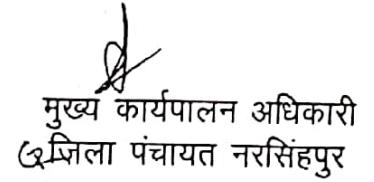 मुख्य कार्यपालन अधिकारी
जिला पंचायत नरसिंहपुर